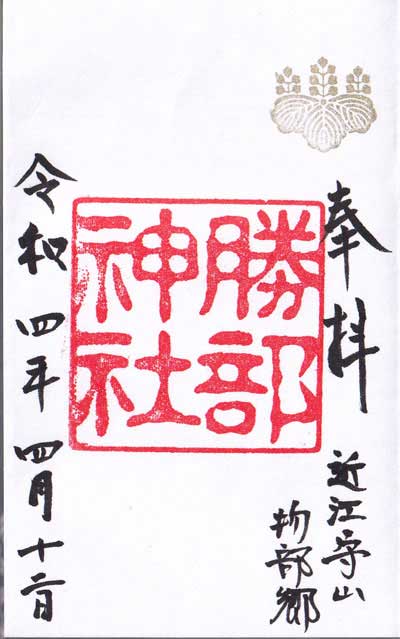 奉拝
近江守山
物部郷
勝部
神社
令和四年四月十二日